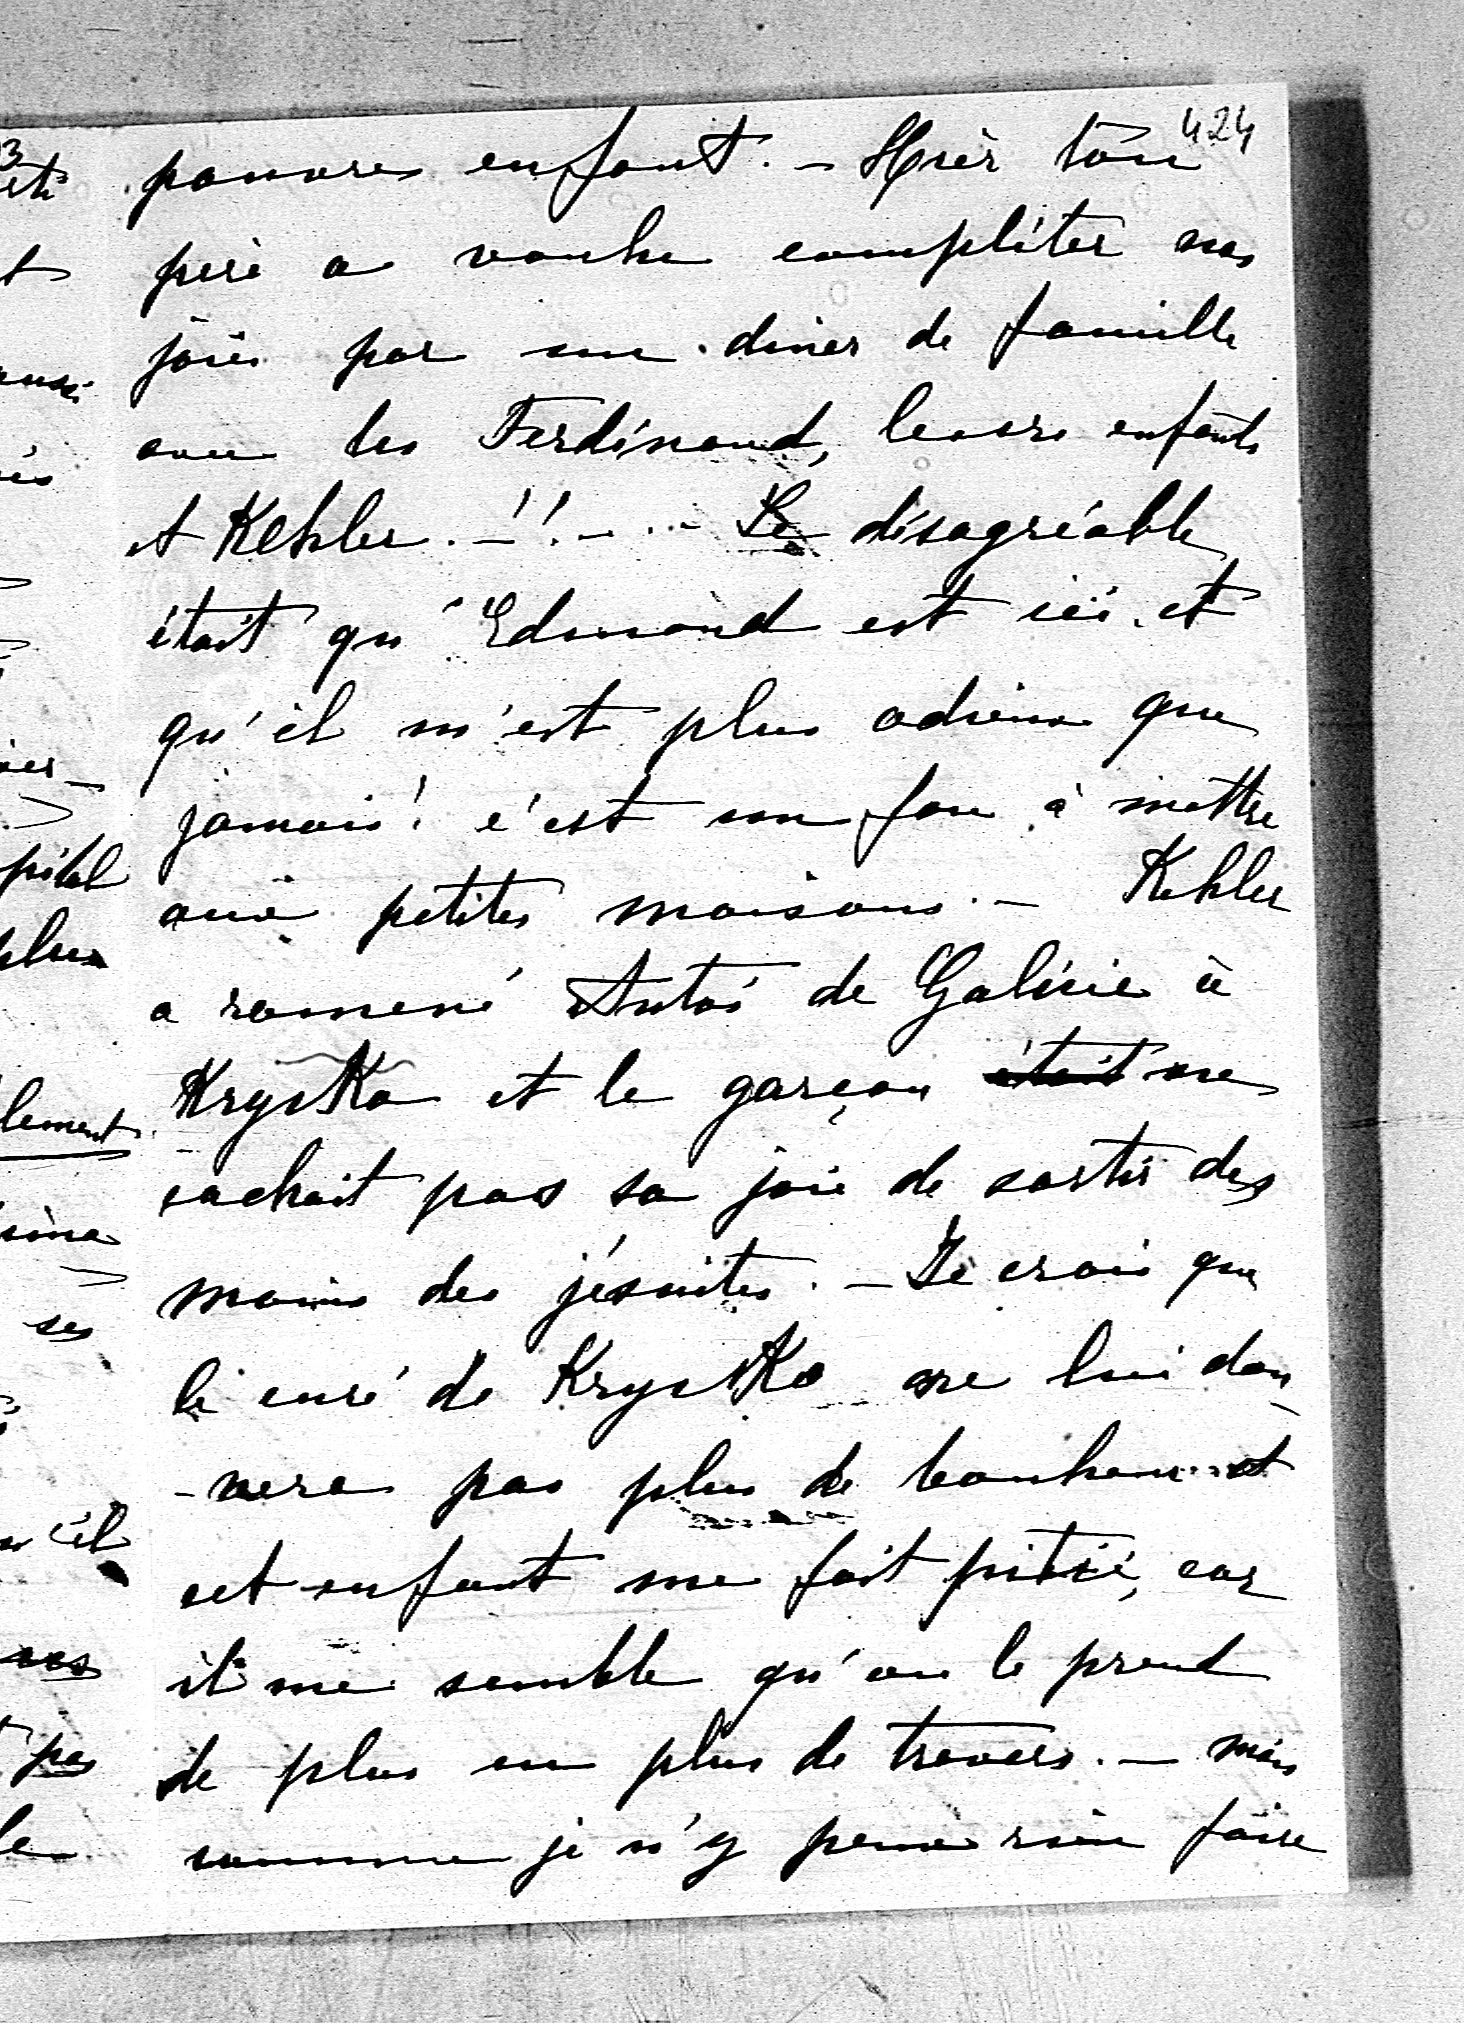 424
pauvres enfant. — Hier ton
père a voulu compléter nos
joies par un diner de famille
avec les Ferdinand, leurs enfants
et Kehler. — !! — .. — Le désagréable
était qu'Edmond est ici et
qu'il m'est plus odieux que
jamais! c'est un fou à mettre
aux petites maisons. — Kehler
a ramené Antoś de Galicie à
Krystka et le garçon était ne
cachait pas sa joie de sortir des
mains des jésuites. — Je crois que
le curé de Krystka ne lui don-
-nera pas plus de bonheur et
cet enfant me fait pitié, car
il me semble qu'on le prend
de plus en plus de travers. — mais
comme je n'y peux rien faire